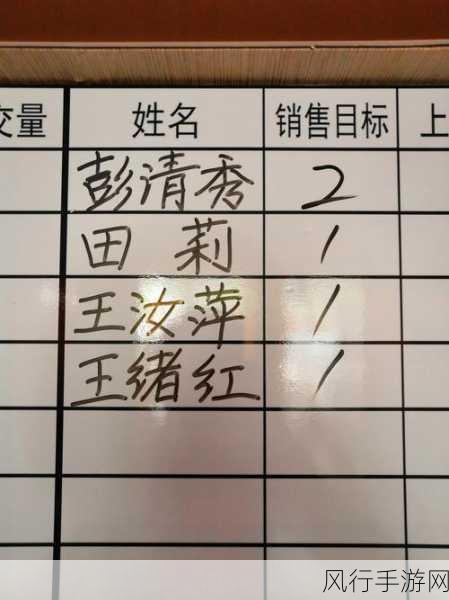 交量 姓名 销售目标 上
彭清秀 2
田莉 1
王汝萍 1
王绪红 1
风行手游网